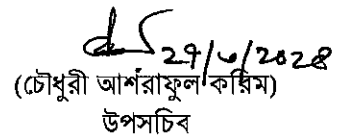 ২৭/৬/২০২৪
(চৌধুরী আশরাফুল করিম)
উপসচিব